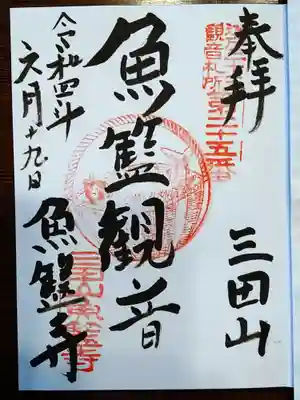 奉拝
三田山
観音札所第二十五番
魚籃観音
令和四年
六月十九日
魚籃寺
三田山魚籃寺